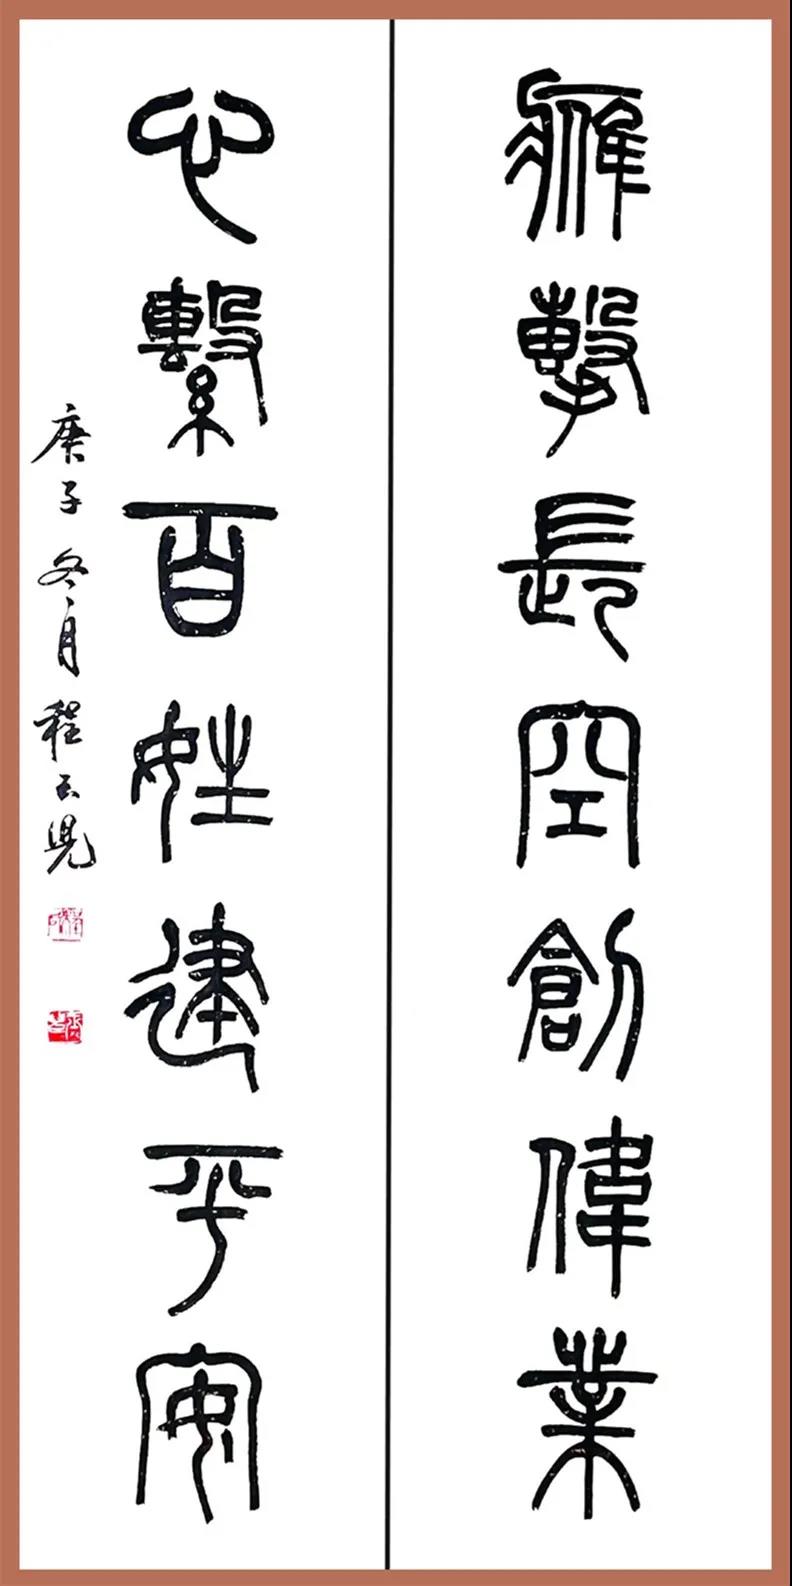 鷹擊長空創偉業
心繫百姓建平安
庚子冬月程